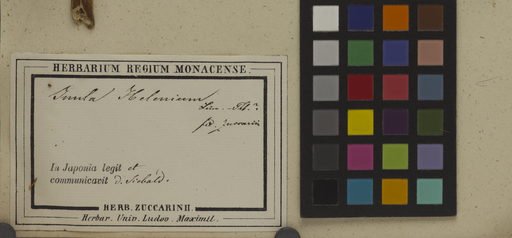 HERBARIUM REGIUM MONACENSE.
Inula Helenium
Lin.
fid. Zuccarini
In Japonia legit et
communicavit d. Siebold.
HERB. ZUCCARINII.
Herbar. Univ. Ludov. Maximil.